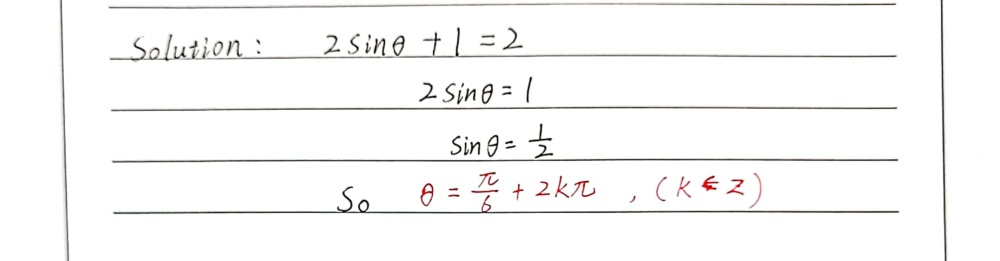 Solution: 2 sinθ + 1 = 2
2 sinθ = 1
sinθ = 1/2
So θ = π/6 + 2kπ , (k ∈ Z)